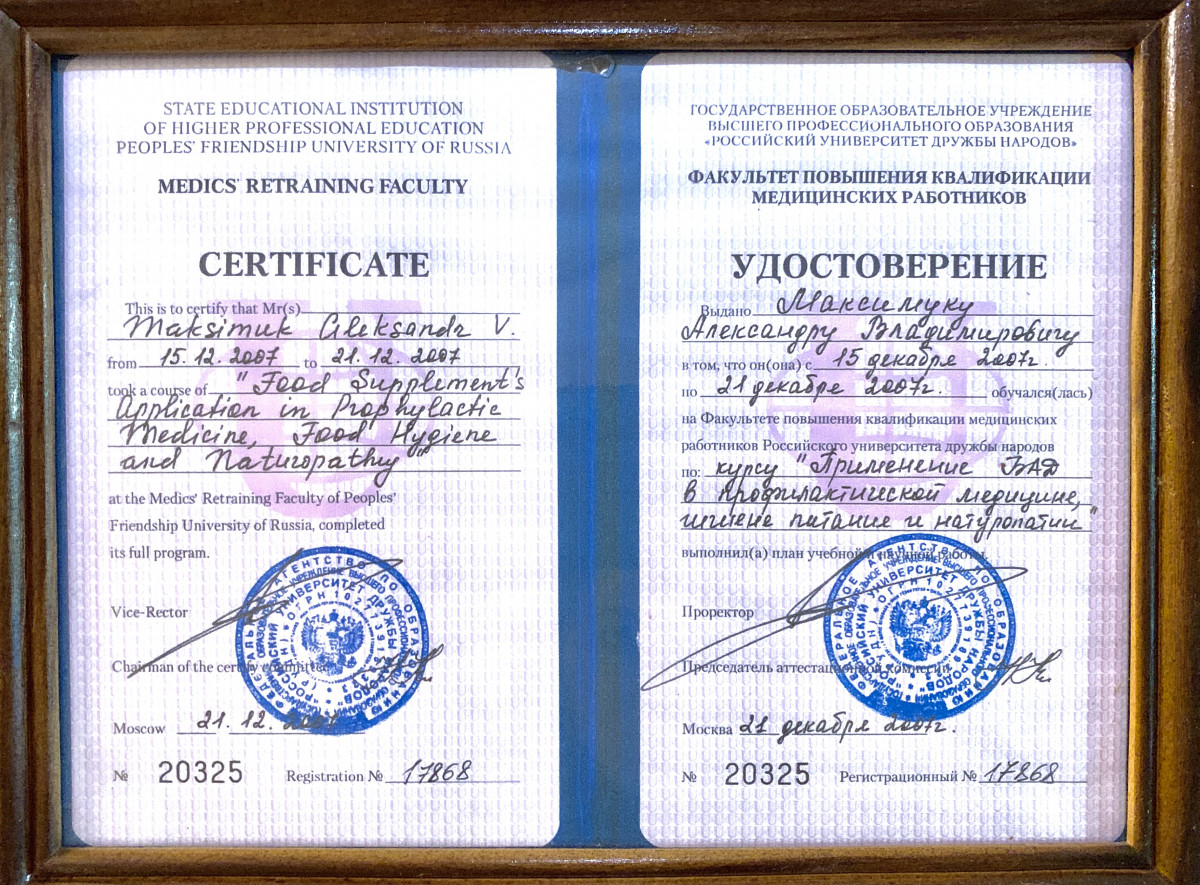 STATE EDUCATIONAL INSTITUTION
OF HIGHER PROFESSIONAL EDUCATION
PEOPLES' FRIENDSHIP UNIVERSITY OF RUSSIA
MEDICS' RETRAINING FACULTY
CERTIFICATE
This is to certify that Mr(s)
Maksimuk Aleksandr V.
from 15.12.2007 to 21.12.2007
took a course of "Food Supplement's
Application in Prophylactic
Medicine, Food Hygiene
and Naturopathy"
at the Medics' Retraining Faculty of Peoples'
Friendship University of Russia, completed
its full program.
Vice-Rector
Chairman of the certify committee
Moscow 21.12.2007
№ 20325 Registration № 17868
ГОСУДАРСТВЕННОЕ ОБРАЗОВАТЕЛЬНОЕ УЧРЕЖДЕНИЕ
ВЫСШЕГО ПРОФЕССИОНАЛЬНОГО ОБРАЗОВАНИЯ
«РОССИЙСКИЙ УНИВЕРСИТЕТ ДРУЖБЫ НАРОДОВ»
ФАКУЛЬТЕТ ПОВЫШЕНИЯ КВАЛИФИКАЦИИ
МЕДИЦИНСКИХ РАБОТНИКОВ
УДОСТОВЕРЕНИЕ
Выдано Максимуку
Александру Владимировичу
в том, что он(она) с 15 декабря 2007г.
по 21 декабря 2007г. обучался(лась)
на Факультете повышения квалификации медицинских
работников Российского университета дружбы народов
по: курсу "Применение БАД
в профилактической медицине,
гигиене питание и натуропатии"
выполнил(а) план учебной и научной работы.
Проректор
Председатель аттестационной комиссии
Москва 21 декабря 2007г.
№ 20325 Регистрационный № 17868